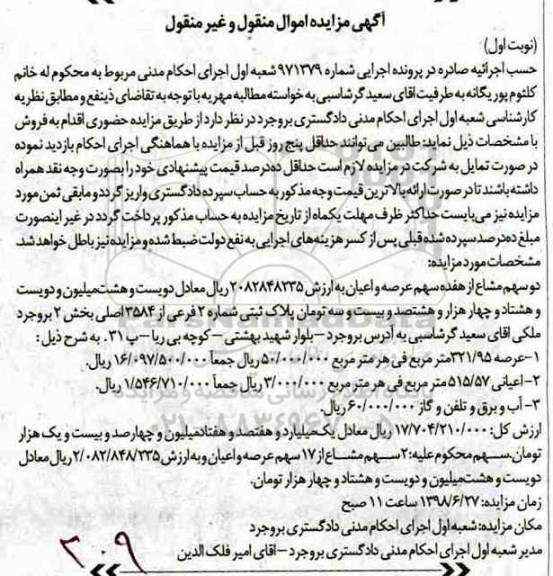 آگهی مزایده اموال منقول و غیر منقول
(نوبت اول)
حسب اجرائیه صادره در پرونده اجرایی شماره ۹۷۱۳۷۹ شعبه اول اجرای احکام مدنی مربوط به محکوم له خانم
کلثوم پور یگانه به طرفیت اقای سعید گرشاسبی به خواسته مطالبه مهریه با توجه به تقاضای ذینفع و مطابق نظریه
کارشناسی شعبه اول اجرای احکام مدنی دادگستری بروجرد در نظر دارد از طریق مزایده حضوری اقدام به فروش
با مشخصات ذیل نماید: طالبین می‌توانند حداقل پنج روز قبل از مزایده با هماهنگی اجرای احکام بازدید نموده
در صورت تمایل به شرکت در مزایده لازم است حداقل ده‌درصد قیمت پیشنهادی خود را بصورت وجه نقد همراه
داشته باشند تا در صورت ارائه بالاترین قیمت وجه مذکور به حساب سپرده دادگستری واریز گردد و مابقی ثمن مورد
مزایده نیز می‌بایست حداکثر ظرف مهلت یکماه از تاریخ مزایده به حساب مذکور پرداخت گردد در غیر اینصورت
مبلغ ده‌درصد سپرده شده قبلی پس از کسر هزینه‌های اجرایی به نفع دولت ضبط شده و مزایده نیز باطل خواهد شد.
مشخصات مورد مزایده:
دو سهم مشاع از هفده سهم عرصه و اعیان به ارزش ۲۰۸۲۸۴۸۲۳۵ ریال معادل دویست و هشت‌میلیون و دویست
و هشتاد و چهار هزار و هشتصد و بیست و سه تومان پلاک ثبتی شماره ۲ فرعی از ۳۵۸۴ اصلی بخش ۲ بروجرد
ملکی اقای سعید گرشاسبی به آدرس بروجرد – بلوار شهید بهشتی – کوچه بی ریا – پ ۳۱. به شرح ذیل:
۱- عرصه ۳۲۱/۹۵ متر مربع فی هر متر مربع ۵۰/۰۰۰/۰۰۰ ریال جمعاً ۱۶/۰۹۷/۵۰۰/۰۰۰ ریال.
۲- اعیانی ۵۱۵/۵۷ متر مربع فی هر متر مربع ۳/۰۰۰/۰۰۰ ریال جمعاً ۱/۵۴۶/۷۱۰/۰۰۰ ریال.
۳- آب و برق و تلفن و گاز ۶۰/۰۰۰/۰۰۰ ریال.
ارزش کل: ۱۷/۷۰۴/۲۱۰/۰۰۰ ریال معادل یک‌میلیارد و هفتصد و هفتادمیلیون و چهارصد و بیست و یک هزار
تومان. سهم محکوم علیه: ۲ سهم مشاع از ۱۷ سهم عرصه و اعیان و به ارزش ۲/۰۸۲/۸۴۸/۲۳۵ ریال معادل
دویست و هشت‌میلیون و دویست و هشتاد و چهار هزار تومان.
زمان مزایده: ۱۳۹۸/۶/۲۷ ساعت ۱۱ صبح
مکان مزایده: شعبه اول اجرای احکام مدنی دادگستری بروجرد
مدیر شعبه اول اجرای احکام مدنی دادگستری بروجرد – اقای امیر فلک الدین
۲۰۹